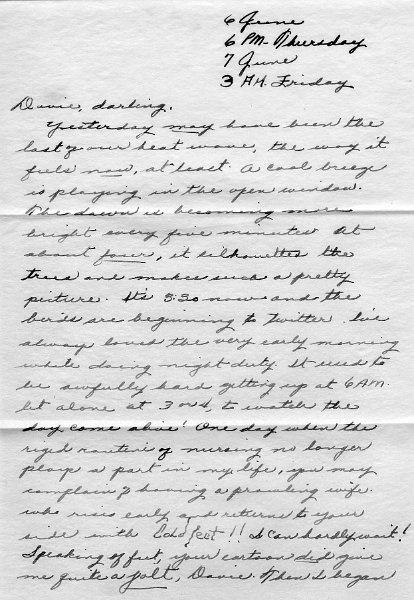 6 June
6 PM- Thursday
7 June
3 AM. Friday
Davie, darling,
Yesterday may have been the
last of our heat wave, the way it
feels now, at least. A cool breeze
is playing in the open window.
The dawn is becoming more
bright every five minutes. At
about four, it silhouettes the
trees and makes such a pretty
picture. It's 3:30 now and the
birds are beginning to twitter. I've
always loved the very early morning
while doing night duty. It used to
be awfully hard getting up at 6 AM.
let alone at 3 or 4, to watch the
day come alive! One day when the
rigid routine of nursing no longer
plays a part in my life, you may
complain of having a prowling wife
who rises early and returns to your
side with cold feet!! I can hardly wait!
Speaking of feet, your cartoon did give
me quite a jolt, Davie. Then I began